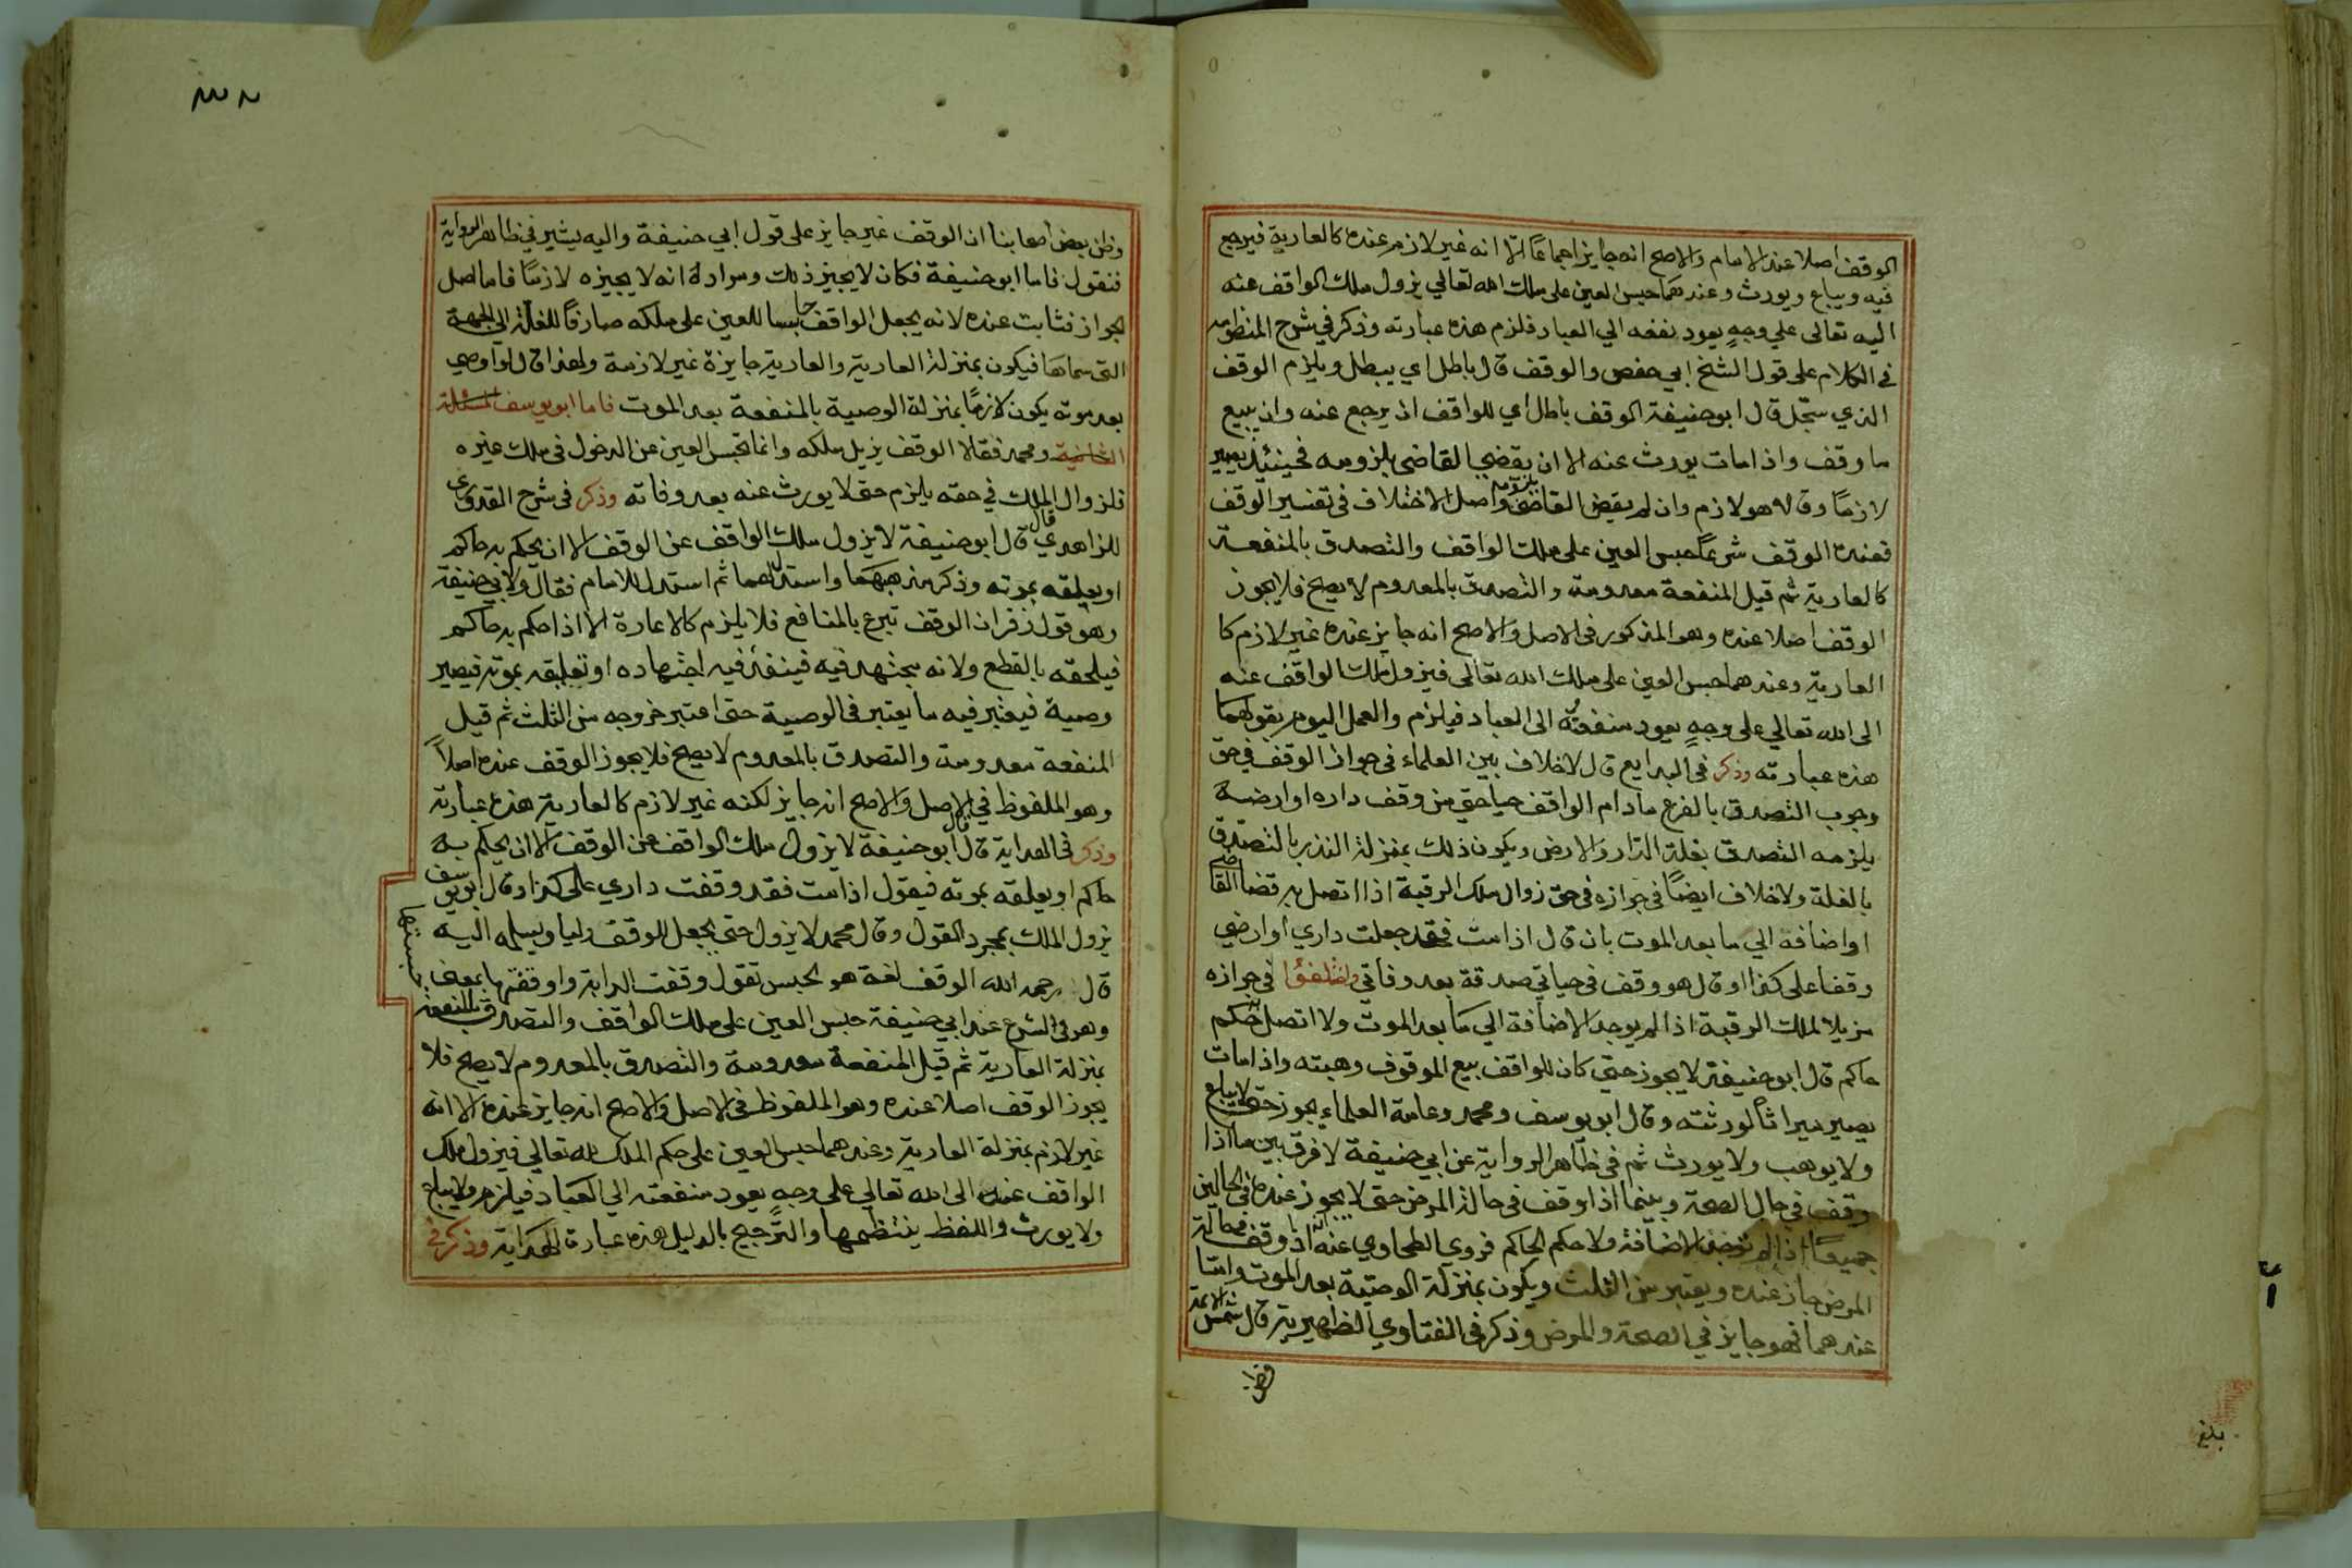 الوقف اصلا عند الامام والاصح انه جايز اجماعًا الا انه غير لازم عنده كالعارية فيرجع
فيه ويباع ويورث وعندهما حبس العين على ملك الله تعالي يزول ملك الواقف عنه
اليه تعالى علي وجهٍ يعود نفعه الي العباد فلزم هذه عبارته وذكر في شرح المنظومه
في الكلام على قول الشيخ ابي حفص والوقف قال باطل اي يبطل ويلزم الوقف
الذي سجّل قال ابو حنيفة الوقف باطل اي للواقف ان يرجع عنه وان يبيع
ما وقف واذا مات يورث عنه الا ان يقضي القاضي بلزومه فحينئذ يصير
لازمًا وقالا هو لازم وان لم يقض القاضي بلزومه واصل الاختلاف في تفسير الوقف
فعنده الوقف شرعًا حبس العين على ملك الواقف والتصدق بالمنفعة
كالعارية ثم قيل المنفعة معدومة والتصدق بالمعدوم لا يصح فلا يجوز
الوقف اصلا عنده وهو المذكور في الاصل والاصح انه جايز عنده غير لازم كا
العارية وعندهما حبس العين على ملك الله تعالى فيزول ملك الواقف عنه
الى الله تعالي على وجهٍ يعود منفعتُه الى العباد فيلزم والعمل اليوم بقولهما
هذه عبارته وذكر في البدايع قال لا خلاف بين العلماء في جواز الوقف في حق
وجوب التصدق بالفرع مادام الواقف حيا حتى من وقف داره او ارضه
يلزمه التصدق بغلة الدار والارض ويكون ذلك بمنزلة النذر بالتصدق
بالغلة ولا خلاف ايضًا في جوازه في حق زوال ملك الرقبة اذا اتصل به قضا القاضي
او اضافه الي ما بعد الموت بان قال اذا مت فقد جعلت داري او ارضي
وقفا على كذا او قال هو وقف في حياتي صدقة بعد وفاتي واختلفوا في جوازه
مزيلا لملك الرقبة اذا لم يوجد الاضافة الي ما بعد الموت ولا اتصل به حكم
حاكم قال ابو حنيفة لا يجوز حتى كان للواقف بيع الموقوف وهبته واذا مات
يصير ميراثًا لورثته وقال ابو يوسف ومحمد وعامة العلماء يجوز حتى لا يباع
ولا يوهب ولا يورث ثم في ظاهر الرواية عن ابي حنيفة لا فرق بين ما اذا
وقف في حال الصحة وبينما اذا وقف في حالة المرض حتى لا يجوز عنده في الحالين
جميعًا اذا لم توجد الاضافة ولا حكم الحاكم فروي الطحاوي عنه انه اذا وقف في حالة
المرض جاز عنده ويعتبر من الثلث ويكون بمنزلة الوصية بعد الموت واما
عندهما فهو جايز في الصحة والمرض وذكر في الفتاوي الظهيرية قال شمس الائمة
وظن
بلغ
وظن بعض اصحابنا ان الوقف غير جايز على قول ابي حنيفة واليه يشير في ظاهر الرواية
فنقول فاما ابو حنيفة فكان لا يجيز ذلك ومراده انه لا يجيزه لازمًا فاما اصل
الجواز فثابت عنده لانه يجعل الواقف حابسا للعين على ملكه صارفًا للغلة الى الجهة
التي سماها فيكون بمنزلة العارية والعارية جايزة غير لازمة ولهذا قال لو اوصي
بعد موته يكون لازمًا بمنزلة الوصية بالمنفعة بعد الموت فاما ابو يوسف المسئلة
الثانية ومحمد فقالا الوقف يزيل ملكه وانما يحبس العين عن الدخول في ملك غيره
فلزوال الملك في حقه يلزم حتى لا يورث عنه بعد وفاته وذكر في شرح القدوري
للزاهدي قال قال ابو حنيفة لا يزول ملك الواقف عن الوقف الا ان يحكم به حاكم
او يعلقه بموته وذكر مذهبهما واستدل لهما ثم استدل للامام فقال ولابي حنيفة
وهو قول زفر ان الوقف تبرع بالمنافع فلا يلزم كالاعارة الا اذا حكم به حاكم
فيلحقه بالقطع ولانه مجتهد فيه فينفذ فيه اجتهاده او تعليقه بموته فيصير
وصية فيعتبر فيه ما يعتبر في الوصية حتى اعتبر خروجه من الثلث ثم قيل
المنفعة معدومة والتصدق بالمعدوم لا يصح فلا يجوز الوقف عنده اصلاً
وهو الملفوظ في الاصل والاصح انه جايز لكنه غير لازم كالعارية هذه عبارته
وذكر في الهداية قال قال ابو حنيفة لا يزول ملك الواقف عن الوقف الا ان يحكم به
حاكم او يعلقه بموته فيقول اذا مت فقد وقفت داري على كذا وقال ابو يوسف
يزول الملك بمجرد القول وقال محمد لا يزول حتى يجعل للوقف وليا ويسلمه اليه
قال رحمه الله الوقف لغة هو الحبس تقول وقفت الدابة واوقفتها بمعنى حبستها
وهو في الشرع عند ابي حنيفة حبس العين على ملك الواقف والتصدق بالمنفعة
بمنزلة العارية ثم قيل المنفعة معدومة والتصدق بالمعدوم لا يصح فلا
يجوز الوقف اصلا عنده وهو الملفوظ في الاصل والاصح انه جايز عنده الا انه
غير لازم بمنزلة العارية وعندهما حبس العين على حكم الملك لله تعالي فيزول ملك
الواقف عنه الى الله تعالي على وجهٍ يعود منفعته الي العباد فيلزم ولا يباع
ولا يورث واللفظ ينتظمها والترجيح بالدليل هذه عبارة الهداية وذكر في